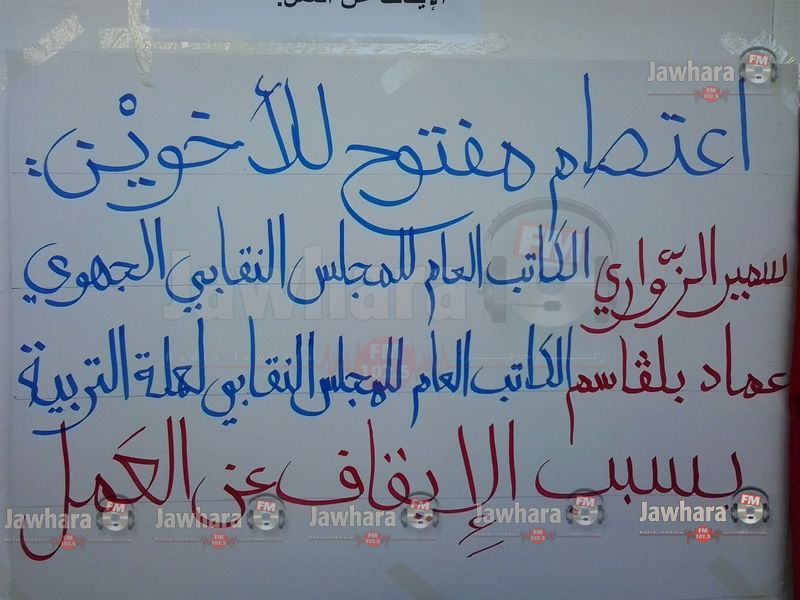 Jawhara FM 102.5
اعتصام مفتوح للأخويْن:
سمير الزّواري الكاتب العام للمجلس النقابي الجهوي
عماد بلقاسم الكاتب العام للمجلس النقابي لعملة التربية
بسبب الإيقاف عن العَمل
Jawhara FM 102.5 Jawhara FM 102.5 Jawhara FM 102.5 Jawhara FM 102.5 Jawhara FM 102.5